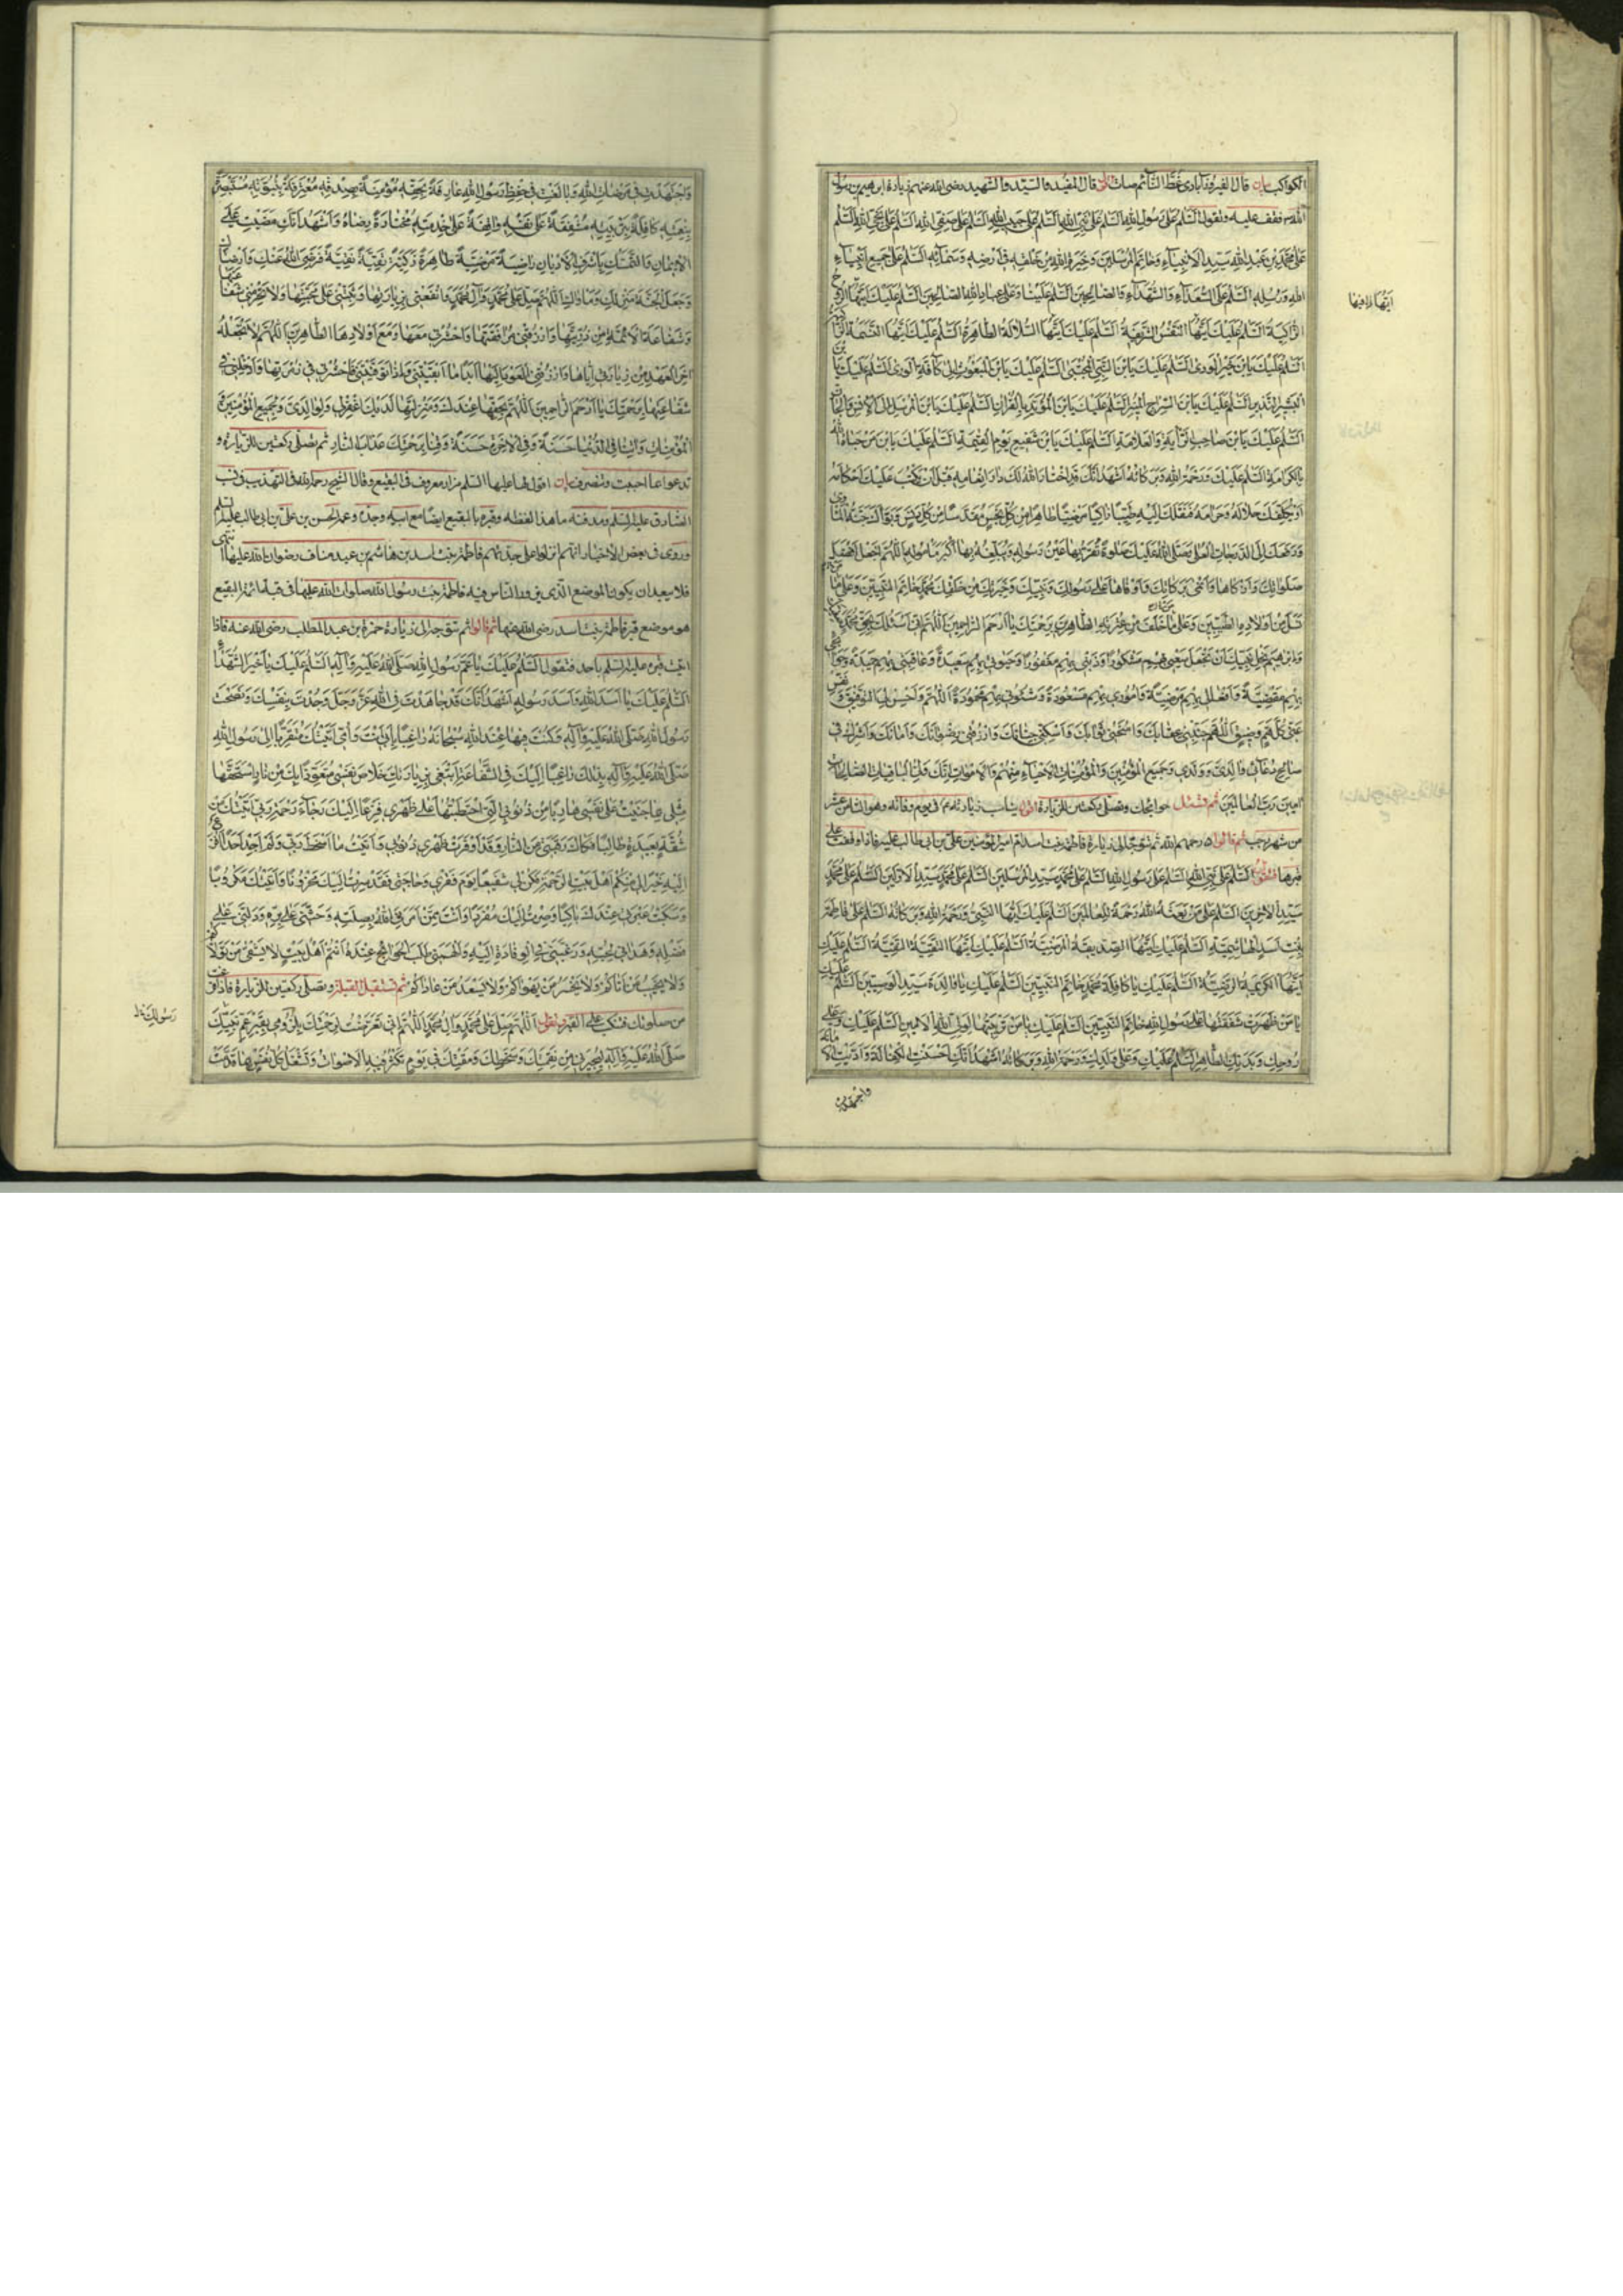 الكواكب بيان قال الفيروزآبادي غط النائم صات ثم قال المفيد والسيد والشهيد رضي الله عنهم زيارة ابراهيم بن رسول
الله ص تقف عليه وتقول السَّلَمُ عَلى رَسُولِ اللهِ السَّلَمُ عَلى نَبِيِّ اللهِ السَّلَمُ عَلى حَبيبِ اللهِ السَّلَمُ عَلى صَفِيِّ اللهِ السَّلَمُ عَلى نَجِيِّ اللهِ السَّلَمُ
عَلى مُحَمَّدِ بْنِ عَبْدِ اللهِ سَيِّدِ الْاَنْبِيآءِ وَخاتَمِ الْمُرْسَلينَ وَخِيَرَةِ اللهِ مِنْ خَلْقِهِ في اَرْضِهِ وَسَمآئِهِ السَّلَمُ عَلى جَميعِ اَنْبِيآءِ
اللهِ وَرُسُلِهِ السَّلَمُ عَلَى السُّعَدآءِ وَالشُّهَدآءِ وَالصّالِحينَ السَّلَمُ عَلَيْنا وَعَلى عِبادِ اللهِ الصّالِحينَ السَّلَمُ عَلَيْكَ اَيَّتُهَا الرُّوحُ
الزّاكِيَةُ السَّلَمُ عَلَيْكَ اَيَّتُهَا النَّفْسُ الشَّريفَةُ السَّلَمُ عَلَيْكَ اَيَّتُهَا السُّلالَةُ الطّاهِرَةُ السَّلَمُ عَلَيْكَ اَيَّتُهَا النَّسَمَةُ الزّاكِيَةُ
السَّلَمُ عَلَيْكَ يَا بْنَ خَيْرِ الْوَرى السَّلَمُ عَلَيْكَ يَا بْنَ النَّبِيِّ الْمُجْتَبى السَّلَمُ عَلَيْكَ يَا بْنَ الْمَبْعُوثِ اِلى كآفَّةِ الْوَرى السَّلَمُ عَلَيْكَ يَا بْنَ
الْبَشيرِ النَّذيرِ السَّلَمُ عَلَيْكَ يَا بْنَ السِّراجِ الْمُنيرِ السَّلَمُ عَلَيْكَ يَا بْنَ الْمُؤَيَّدِ بِالْقُرْانِ السَّلَمُ عَلَيْكَ يَا بْنَ الْمُرْسَلِ اِلَى الْاِنْسِ وَالْجانِّ
السَّلَمُ عَلَيْكَ يَا بْنَ صاحِبِ الرّايَةِ وَالْعَلامَةِ السَّلَمُ عَلَيْكَ يَا بْنَ شَفيعِ يَوْمِ الْقِيمَةِ السَّلَمُ عَلَيْكَ يَا بْنَ مَنْ حَباهُ اللهُ
بِالْكَرامَةِ السَّلَمُ عَلَيْكَ وَرَحْمَةُ اللهِ وَبَرَكاتُهُ اَشْهَدُ اَنَّكَ قَدِ اخْتارَ اللهُ لَكَ دارَ اِنْعامِهِ قَبْلَ اَنْ يَكْتُبَ عَلَيْكَ اَحْكامَهُ
اَوْ يُكَلِّفَكَ حَلالَهُ وَحَرامَهُ فَنَقَلَكَ اِلَيْهِ طَيِّباً زاكِياً مَرْضِيّاً طاهِراً مِنْ كُلِّ نَجَسٍ مُقَدَّساً مِنْ كُلِّ دَنَسٍ وَبَوَّاَكَ جَنَّةَ الْمَاْوى
وَرَفَعَكَ اِلَى الدَّرَجاتِ الْعُلى وَصَلَّى اللهُ عَلَيْكَ صَلوةً تَقَرُّ بِها عَيْنُ رَسُولِهِ وَيُبَلِّغُهُ بِها اَكْبَرَ مَاْمُولِهِ اَللّهُمَّ اجْعَلْ اَفْضَلَ
صَلَواتِكَ وَاَزْكاها وَاَنْمى بَرَكاتِكَ وَاَوْفاها عَلى رَسُولِكَ وَنَبِيِّكَ وَخِيَرَتِكَ مِنْ خَلْقِكَ مُحَمَّدٍ خاتَمِ النَّبِيّينَ وَعَلى مَنْ
نَسَلَ مِنْ اَوْلادِهِ الطَّيِّبينَ وَعَلى مَنْ خَلَّفَ مِنْ عِتْرَتِهِ الطّاهِرينَ بِرَحْمَتِكَ يا اَرْحَمَ الرّاحِمينَ اَللّهُمَّ اِنّي اَسْئَلُكَ بِحَقِّ مُحَمَّدٍ صَفِيِّكَ
وَاِبْرهيمَ نَجْلِ نَبِيِّكَ اَنْ تَجْعَلَ سَعْيي بِهِمْ مَشْكُوراً وَذَنْبي بِهِمْ مَغْفُوراً وَحَيوتي بِهِمْ سَعيدَةً وَعاقِبَتي بِهِمْ حَميدَةً وَحَوآئِجي
بِهِمْ مَقْضِيَّةً وَاَفْعالي بِهِمْ مَرْضِيَّةً وَاُمُوري بِهِمْ مَسْعُودَةً وَشُئُوني بِهِمْ مَحْمُودَةً اَللّهُمَّ وَاَحْسِنْ لِيَ التَّوْفيقَ وَنَفِّسْ
عَنّي كُلَّ هَمٍّ وَضيقٍ اَللّهُمَّ جَنِّبْني عِقابَكَ وَامْنَحْني ثَوابَكَ وَاَسْكِنّي جِنانَكَ وَارْزُقْني رِضْوانَكَ وَاَمانَكَ وَاَشْرِكْ في
صالِحِ دُعآئي والِدَيَّ وَوَلَدي وَجَميعَ الْمُؤْمِنينَ وَالْمُؤْمِناتِ الْاَحْيآءِ مِنْهُمْ وَالْاَمْواتِ اِنَّكَ وَلِيُّ الْباقِياتِ الصّالِحاتِ
امينَ رَبَّ الْعالَمينَ ثم تسئل حوائجك وتصلي ركعتين للزيارة اقول يناسب زيارته ع في يوم وفاته وهو الثامن عشر
من شهر رجب ثم قالوا رحمهم الله ثم تتوجه الى زيارة فاطمة بنت اسد ام امير المؤمنين علي بن ابي طالب عليه فاذا وقفت على
قبرها فتقول السَّلَمُ عَلى نَبِيِّ اللهِ السَّلَمُ عَلى رَسُولِ اللهِ السَّلَمُ عَلى مُحَمَّدٍ سَيِّدِ الْمُرْسَلينَ السَّلَمُ عَلى مُحَمَّدٍ سَيِّدِ الْاَوَّلينَ السَّلَمُ عَلى مُحَمَّدٍ
سَيِّدِ الْاخِرينَ السَّلَمُ عَلى مَنْ بَعَثَهُ اللهُ رَحْمَةً لِلْعالَمينَ السَّلَمُ عَلَيْكَ اَيُّهَا النَّبِيُّ وَرَحْمَةُ اللهِ وَبَرَكاتُهُ السَّلَمُ عَلى فاطِمَةَ
بِنْتِ اَسَدٍ الْهاشِمِيَّةِ السَّلَمُ عَلَيْكِ اَيَّتُهَا الصِّدّيقَةُ الْمَرْضِيَّةُ السَّلَمُ عَلَيْكِ اَيَّتُهَا التَّقِيَّةُ النَّقِيَّةُ السَّلَمُ عَلَيْكِ
اَيَّتُهَا الْكَريمَةُ الرَّضِيَّةُ السَّلَمُ عَلَيْكِ يا كافِلَةَ مُحَمَّدٍ خاتَمِ النَّبِيّينَ السَّلَمُ عَلَيْكِ يا والِدَةَ سَيِّدِ الْوَصِيّينَ السَّلَمُ عَلَيْكِ
يا مَنْ ظَهَرَتْ شَفَقَتُها عَلى رَسُولِ اللهِ خاتَمِ النَّبِيّينَ السَّلَمُ عَلَيْكِ يا مَنْ تَرْبِيَتُها لِوَلِيِّ اللهِ الْاَمينِ السَّلَمُ عَلَيْكِ وَعَلى
رُوحِكِ وَبَدَنِكِ الطّاهِرِ السَّلَمُ عَلَيْكِ وَعَلى وَلَدِكِ وَرَحْمَةُ اللهِ وَبَرَكاتُهُ اَشْهَدُ اَنَّكِ اَحْسَنْتِ الْكَفالَةَ وَاَدَّيْتِ الْاَمانَةَ
واجتهدت
وَاجْتَهَدْتِ في مَرْضاتِ اللهِ وَبالَغْتِ في حِفْظِ رَسُولِ اللهِ عارِفَةً بِحَقِّهِ مُؤْمِنَةً بِصِدْقِهِ مُعْتَرِفَةً بِنُبُوَّتِهِ مُسْتَبْصِرَةً
بِنِعْمَتِهِ كافِلَةً بِتَرْبِيَتِهِ مُشْفِقَةً عَلى نَفْسِهِ واقِفَةً عَلى خِدْمَتِهِ مُخْتارَةً رِضاهُ وَاَشْهَدُ اَنَّكِ مَضَيْتِ عَلَى
الْاِيْمانِ وَالتَّمَسُّكِ بِاَشْرَفِ الْاَدْيانِ راضِيَةً مَرْضِيَّةً طاهِرَةً زَكِيَّةً تَقِيَّةً نَقِيَّةً فَرَضِيَ اللهُ عَنْكِ وَاَرْضاكِ
وَجَعَلَ الْجَنَّةَ مَنْزِلَكِ وَمَاْواكِ اَللّهُمَّ صَلِّ عَلى مُحَمَّدٍ وَآلِ مُحَمَّدٍ وَانْفَعْني بِزِيارَتِها وَثَبِّتْني عَلى مَحَبَّتِها وَلا تَحْرِمْني شَفاعَتَها
وَشَفاعَةَ الْاَئِمَّةِ مِنْ ذُرِّيَّتِها وَارْزُقْني مُرافَقَتَها وَاحْشُرْني مَعَها وَمَعَ اَوْلادِهَا الطّاهِرينَ اَللّهُمَّ لا تَجْعَلْهُ
اخِرَ الْعَهْدِ مِنْ زِيارَتي اِيّاها وَارْزُقْنِي الْعَوْدَ اِلَيْها اَبَداً ما اَبْقَيْتَني وَاِذا تَوَفَّيْتَني فَاحْشُرْني في زُمْرَتِها وَاَدْخِلْني في
شَفاعَتِها بِرَحْمَتِكَ يا اَرْحَمَ الرّاحِمينَ اَللّهُمَّ بِحَقِّها عِنْدَكَ وَمَنْزِلَتِها لَدَيْكَ اغْفِرْ لي وَلِوالِدَيَّ وَلِجَميعِ الْمُؤْمِنينَ وَ
الْمُؤْمِناتِ وَآتِنا فِي الدُّنْيا حَسَنَةً وَفِي الْاخِرَةِ حَسَنَةً وَقِنا بِرَحْمَتِكَ عَذابَ النّارِ ثم تصلي ركعتين للزيارة و
تدعو بما احببت وتنصرف بيان اقول لها عليها السلم مزار معروف في البقيع وقال الشيخ رحمه الله في التهذيب في نسب
الصادق عليه السلم ومدفنه ما هذا لفظه وقبره بالبقيع ايضا مع ابيه وجده وعمه الحسن بن علي بن ابي طالب عليهم السلم
وروي في بعض الاخبار انهم انزلوا على جدتهم فاطمة بنت اسد بن هاشم بن عبد مناف رضوان الله عليها انتهى
فلا يبعد ان يكون الموضع الذي يزور الناس فيه فاطمة بنت رسول الله صلوات الله عليها في قبة ائمة البقيع
هو موضع قبر فاطمة بنت اسد رضي الله عنها ثم قالوا ثم تتوجه الى زيارة حمزة بن عبد المطلب رضي الله عنه فاذا
اتيت قبره عليه السلم باحد فتقول السَّلَمُ عَلَيْكَ يا عَمَّ رَسُولِ اللهِ صَلَّى اللهُ عَلَيْهِ وَآلِهِ السَّلَمُ عَلَيْكَ يا خَيْرَ الشُّهَدآءِ
السَّلَمُ عَلَيْكَ يا اَسَدَ اللهِ وَاَسَدَ رَسُولِهِ اَشْهَدُ اَنَّكَ قَدْ جاهَدْتَ فِي اللهِ عَزَّ وَجَلَّ وَجُدْتَ بِنَفْسِكَ وَنَصَحْتَ
رَسُولَ اللهِ صَلَّى اللهُ عَلَيْهِ وَآلِهِ وَكُنْتَ فيما عِنْدَ اللهِ سُبْحانَهُ راغِباً بِاَبي اَنْتَ وَاُمّي اَتَيْتُكَ مُتَقَرِّباً اِلى رَسُولِ اللهِ
صَلَّى اللهُ عَلَيْهِ وَآلِهِ بِذلِكَ راغِباً اِلَيْكَ فِي الشَّفاعَةِ اَبْتَغي بِزِيارَتِكَ خَلاصَ نَفْسي مُتَعَوِّذاً بِكَ مِنْ نارٍ اسْتَحَقَّها
مِثْلي بِما جَنَيْتُ عَلى نَفْسي هارِباً مِنْ ذُنُوبِيَ الَّتِي احْتَطَبْتُها عَلى ظَهْري فَزِعاً اِلَيْكَ رَجآءَ رَحْمَةِ رَبّي اَتَيْتُكَ مِنْ
شُقَّةٍ بَعيدَةٍ طالِباً فَكاكَ رَقَبَتي مِنَ النّارِ وَقَدْ اَوْقَرَتْ ظَهْري ذُنُوبي وَاَتَيْتُ ما اَسْخَطَ رَبّي وَلَمْ اَجِدْ اَحَداً اَفْزَعُ
اِلَيْهِ خَيْراً لي مِنْكُمْ اَهْلَ بَيْتِ الرَّحْمَةِ فَكُنْ لي شَفيعاً يَوْمَ فَقْري وَحاجَتي فَقَدْ سِرْتُ اِلَيْكَ مَحْزُوناً وَاَتَيْتُكَ مَكْرُوباً
وَسَكَبْتُ عَبْرَتي عِنْدَكَ باكِياً وَصِرْتُ اِلَيْكَ مُفْرَداً وَاَنْتَ مِمَّنْ اَمَرَنِيَ اللهُ بِصِلَتِهِ وَحَثَّني عَلى بِرِّهِ وَدَلَّني عَلى
فَضْلِهِ وَهَداني لِحُبِّهِ وَرَغَّبَني فِي الْوِفادَةِ اِلَيْهِ وَاَلْهَمَني طَلَبَ الْحَوآئِجِ عِنْدَهُ اَنْتُمْ اَهْلُ بَيْتٍ لا يَشْقى مَنْ تَوَلّاكُمْ
وَلا يَخيبُ مَنْ اَتاكُمْ وَلا يَخْسَرُ مَنْ يَهْواكُمْ وَلا يَسْعَدُ مَنْ عاداكُمْ ثم تستقبل القبلة وتصلي ركعتين للزيارة فاذا فرغت
من صلوتك فتنكب على القبر وتقول اَللّهُمَّ صَلِّ عَلى مُحَمَّدٍ وَآلِ مُحَمَّدٍ اَللّهُمَّ اِنّي تَعَرَّضْتُ لِرَحْمَتِكَ بِلُزُومي بِقَبْرِ عَمِّ نَبِيِّكَ
رَسُولِكَ خ ل
صَلَّى اللهُ عَلَيْهِ وَآلِهِ لِيُجيرَني مِنْ نِقْمَتِكَ وَسَخَطِكَ وَمَقْتِكَ في يَوْمٍ تَكْثُرُ فيهِ الْاَصْواتُ وَتَشْغَلُ كُلَّ نَفْسٍ بِما قَدَّمَتْ